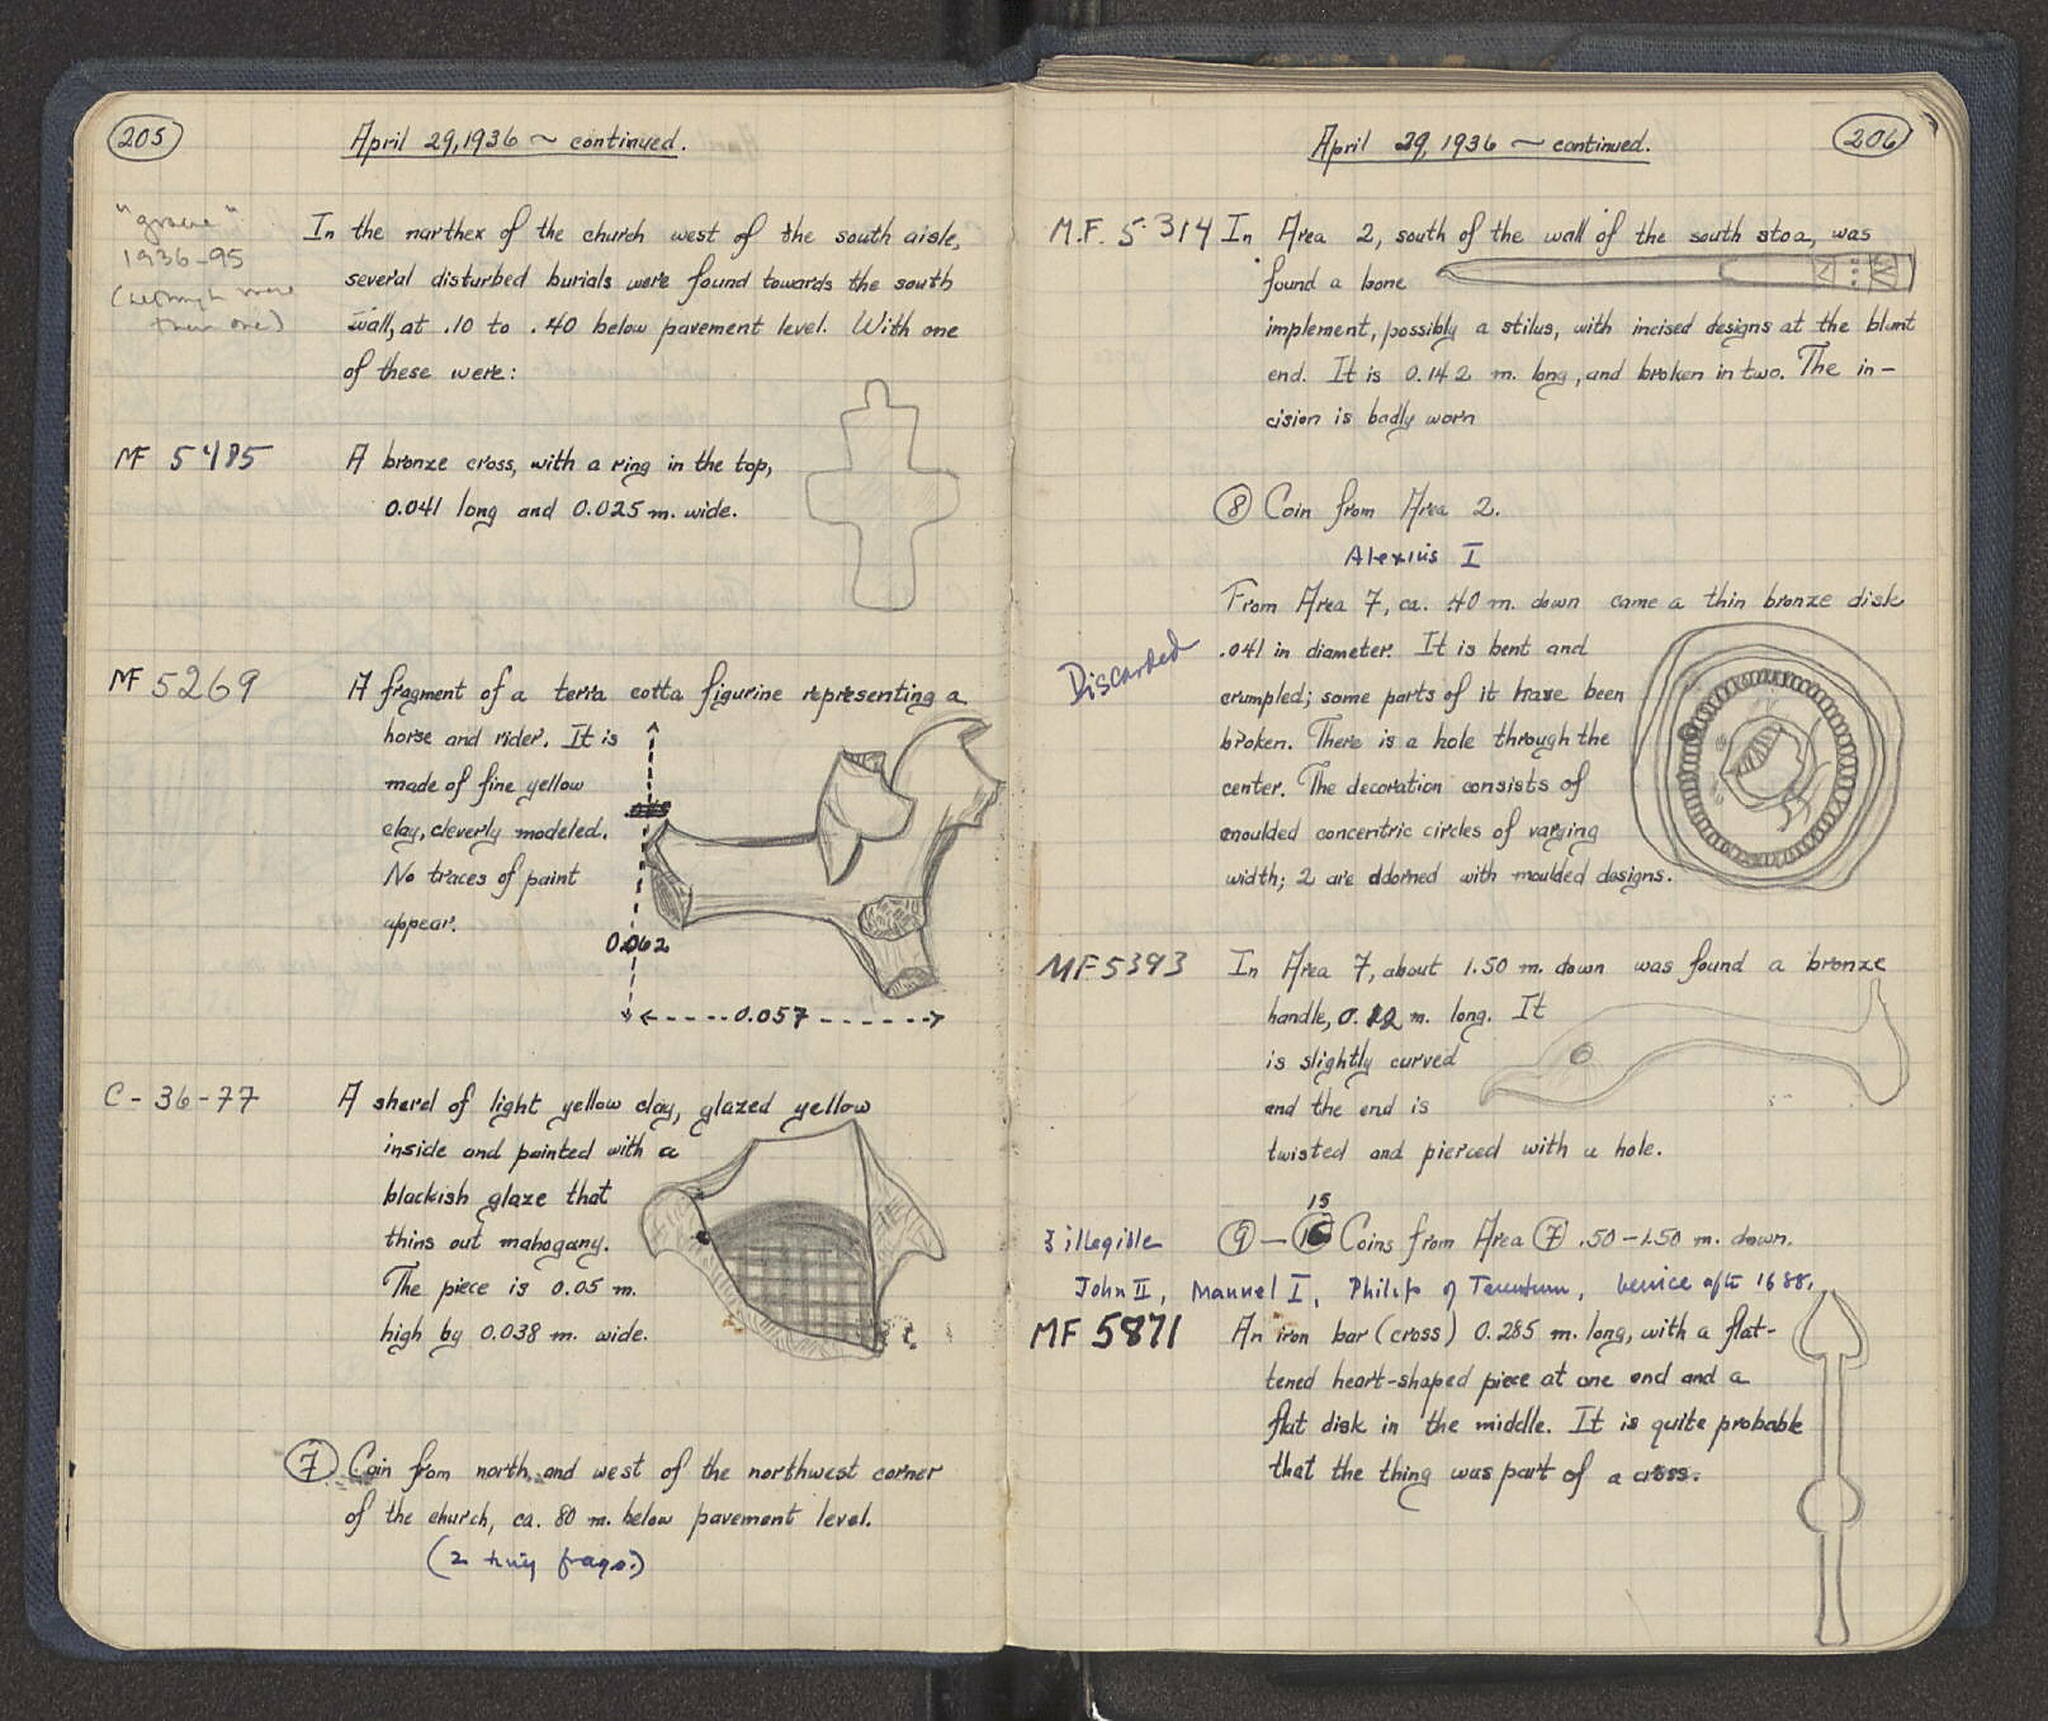 205
April 29, 1936 ~ continued.
"grave"
1936-95
(although more
than one)
In the narthex of the church west of the south aisle,
several disturbed burials were found towards the south
wall, at .10 to .40 below pavement level. With one
of these were:
MF 5485
A bronze cross, with a ring in the top,
0.041 long and 0.025 m. wide.
MF 5269
A fragment of a terra cotta figurine representing a
horse and rider. It is
made of fine yellow
clay, cleverly modeled.
No traces of paint
appear.
0.062
0.057
C-36-77
A sherd of light yellow clay, glazed yellow
inside and painted with a
blackish glaze that
thins out mahogany.
The piece is 0.05 m.
high by 0.038 m. wide.
7 Coin from north and west of the northwest corner
of the church, ca. 80 m. below pavement level.
(2 tiny frags.)
206
April 29, 1936 ~ continued.
M.F. 5314 In Area 2, south of the wall of the south stoa, was
found a bone
implement, possibly a stilus, with incised designs at the blunt
end. It is 0.142 m. long, and broken in two. The in-
cision is badly worn
8 Coin from Area 2.
Alexius I
From Area 7, ca. .40 m. down came a thin bronze disk
Discarded
.041 in diameter. It is bent and
crumpled; some parts of it have been
broken. There is a hole through the
center. The decoration consists of
moulded concentric circles of varying
width; 2 are adorned with moulded designs.
MF 5393 In Area 7, about 1.50 m. down was found a bronze
handle, 0.12 m. long. It
is slightly curved
and the end is
twisted and pierced with a hole.
15
3 illegible 9 — Coins from Area 7 .50-1.50 m. down.
John II, Manuel I, Philip of Tarentum, Venice aft 1688.
MF 5871 An iron bar (cross) 0.285 m. long, with a flat-
tened heart-shaped piece at one end and a
flat disk in the middle. It is quite probable
that the thing was part of a cross.